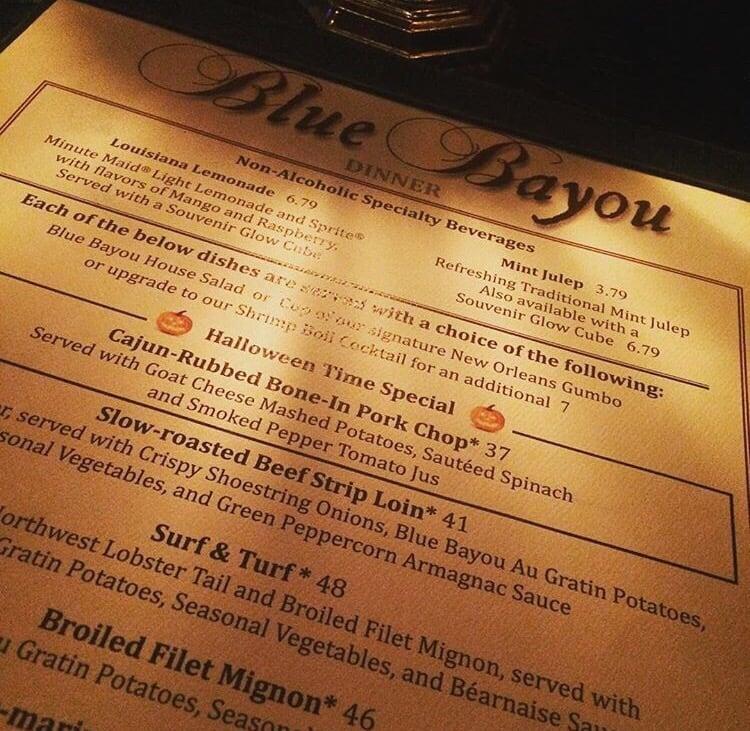 Blue Bayou
DINNER
Non-Alcoholic Specialty Beverages
Louisiana Lemonade 6.79
Minute Maid® Light Lemonade and Sprite®
with flavors of Mango and Raspberry.
Served with a Souvenir Glow Cube
Mint Julep 3.79
Refreshing Traditional Mint Julep
Also available with a
Souvenir Glow Cube 6.79
Each of the below dishes are served with a choice of the following:
Blue Bayou House Salad or Cup of our signature New Orleans Gumbo
or upgrade to our Shrimp Boil Cocktail for an additional 7
Halloween Time Special
Cajun-Rubbed Bone-In Pork Chop* 37
Served with Goat Cheese Mashed Potatoes, Sautéed Spinach
and Smoked Pepper Tomato Jus
Slow-roasted Beef Strip Loin* 41
served with Crispy Shoestring Onions, Blue Bayou Au Gratin Potatoes,
Vegetables, and Green Peppercorn Armagnac Sauce
Surf & Turf * 48
Lobster Tail and Broiled Filet Mignon, served with
Gratin Potatoes, Seasonal Vegetables, and Béarnaise
Broiled Filet Mignon* 46
Gratin Potatoes,